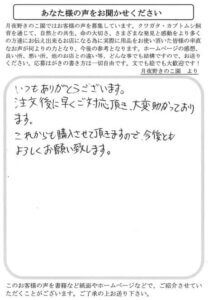 あなた様の声をお聞かせください
月夜野きのこ園ではお客様の声を募集しています。クワガタ・カブトムシ飼
育を通じて、自然との共生、命の大切さ、さまざまな発見と感動をより多く
の方達にお伝え出来るお店になる為に実際に商品をお使い頂いた皆様の率直
なお声が何よりの力となり、今後の参考となります。ホームページの感想、
良い所、悪い所、他のお店との違い等、どんな事でも結構ですので、お送り
ください。応募はがきの書き方は一切自由です。文でも絵でも大歓迎です！
月夜野きのこ園 より
いつもありがとうございます。
注文後に早くご対応頂き、大変助かっており
ます。
これからも購入させて頂きますので今後とも
よろしくお願い致します。
このお客様の声を書籍など紙面やホームページなどで、ご紹介させてい
ただくことがございます。ご了承の上お送り下さい。